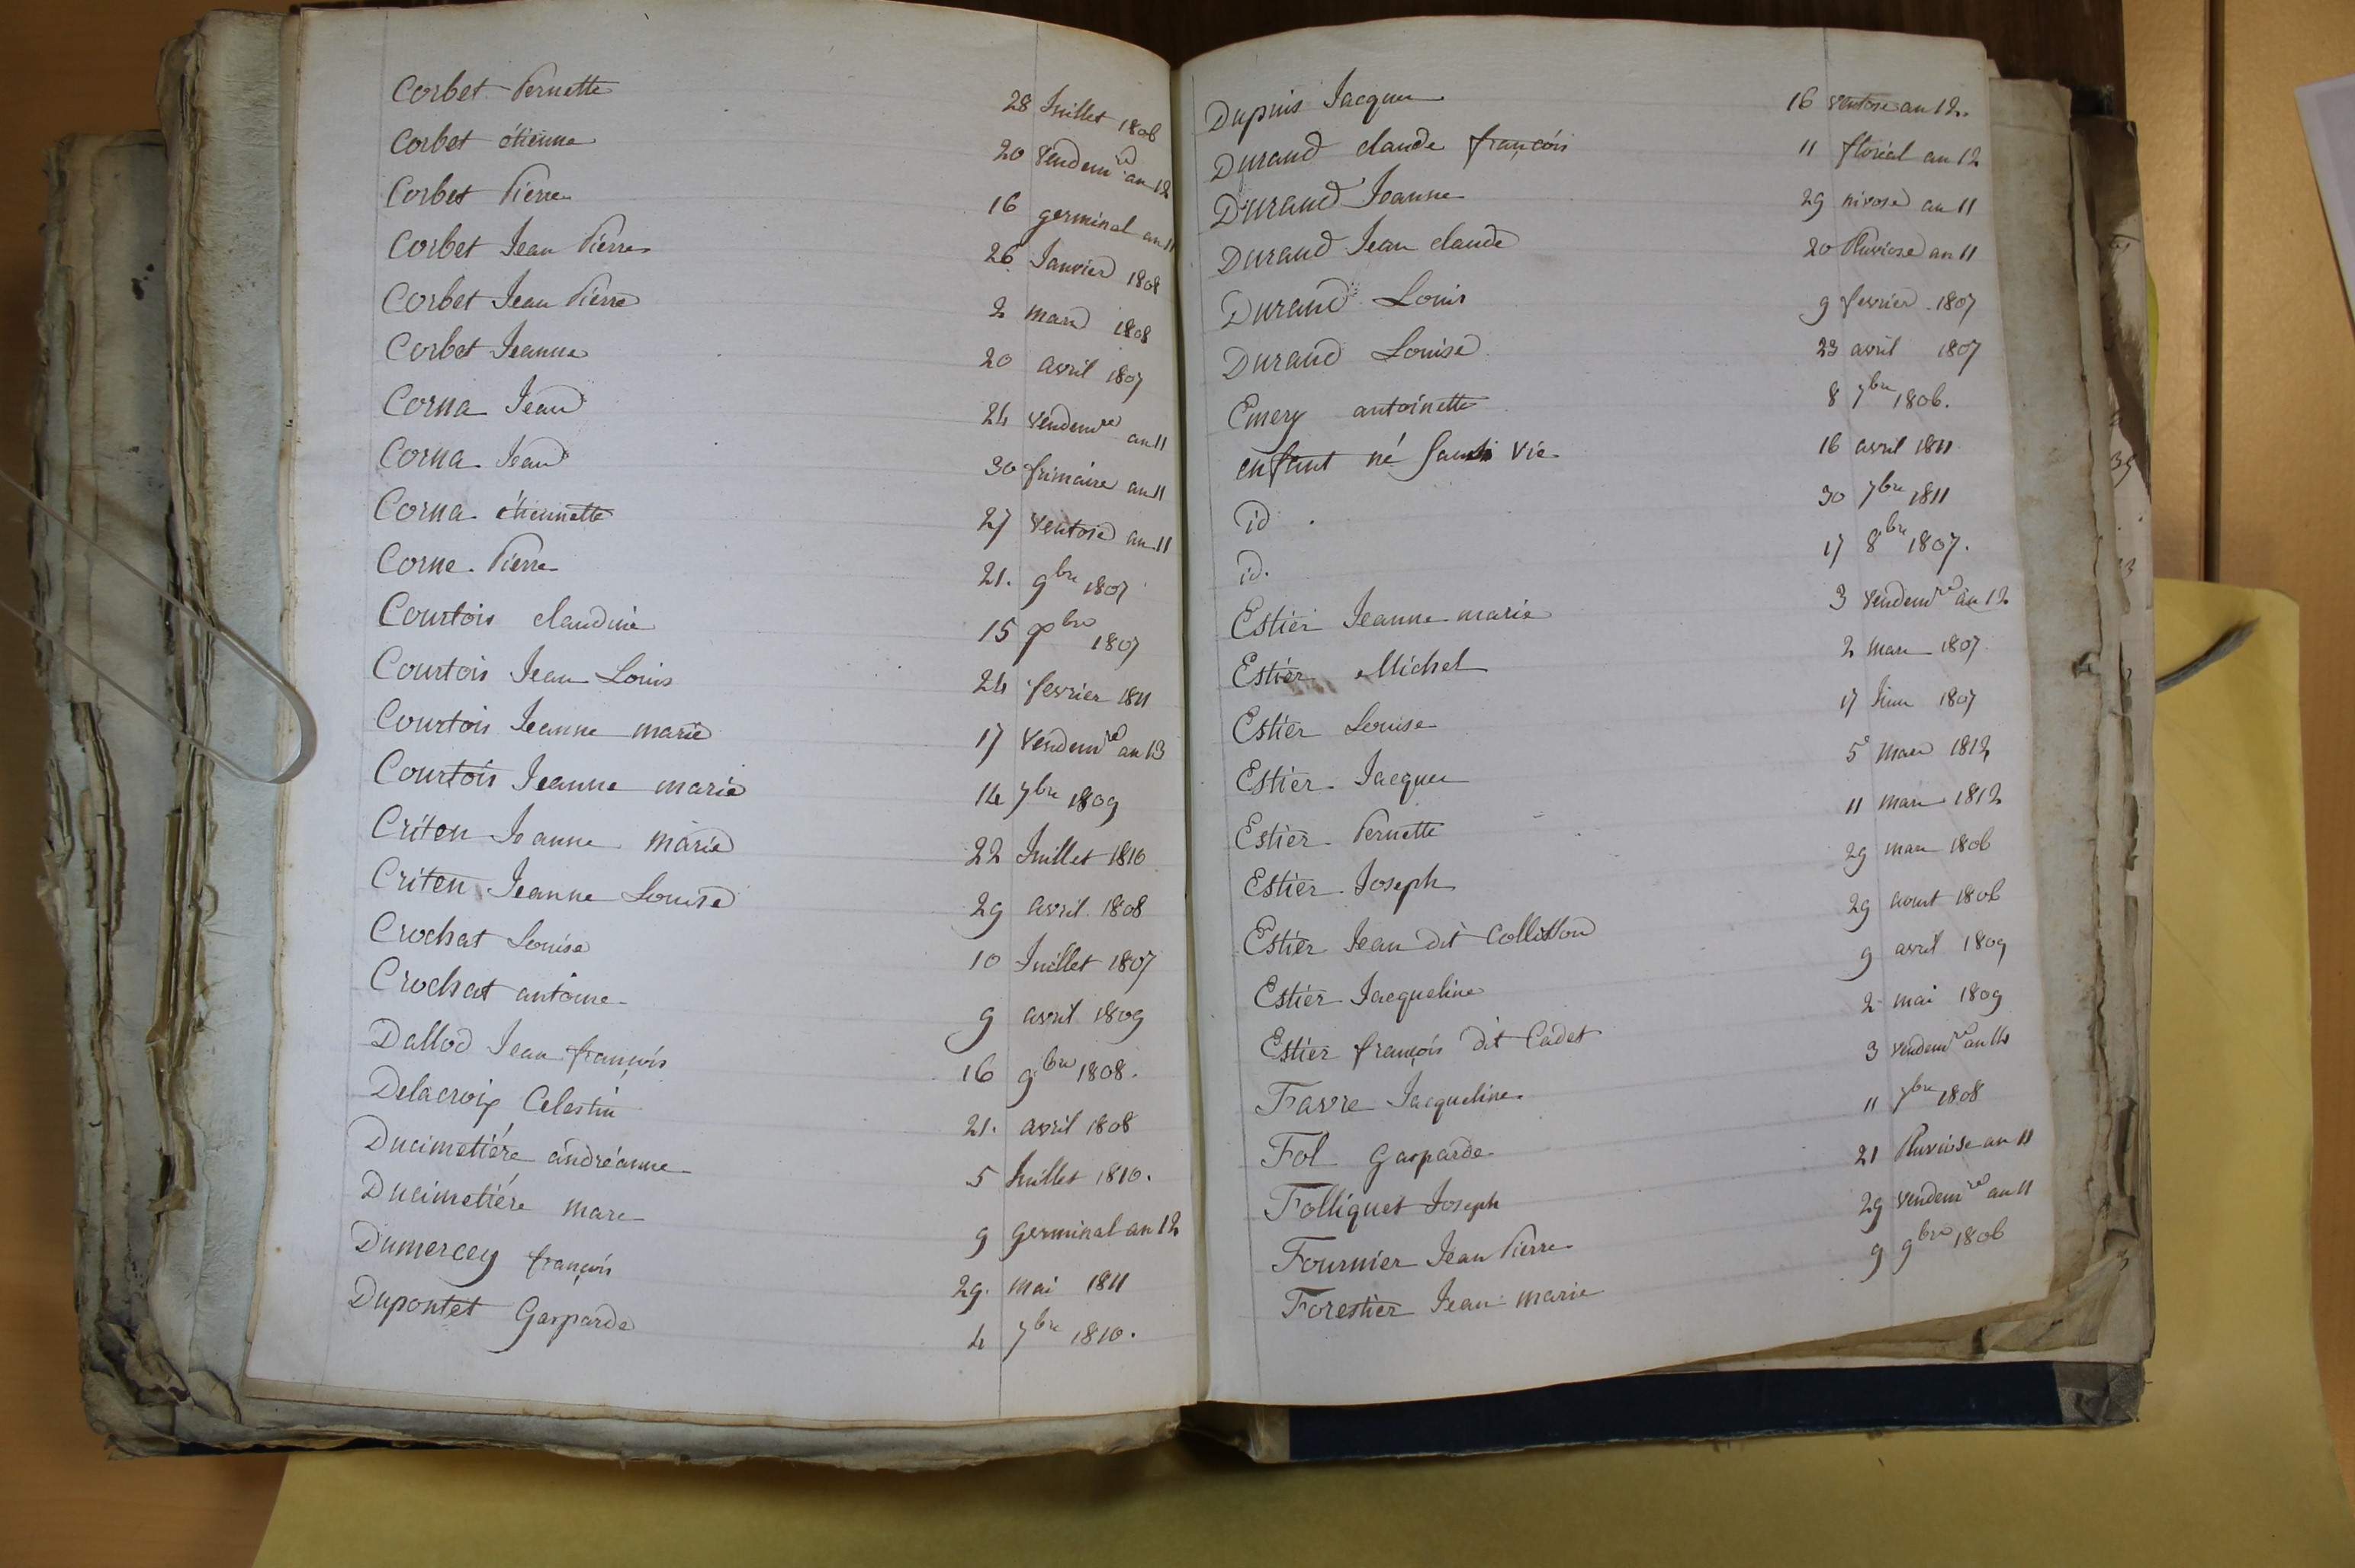 Corbet Pernette 28 Juillet 1806
Corbet étienne 20 Vendem.re an 12
Corbet Pierre 16 germinal an 11
Corbet Jean Pierre 26 Janvier 1808
Corbet Jean Pierre 2 mars 1808
Corbet Jeanne 20 avril 1807
Corna Jean 24 Vendemre an 11
Corna Jean 30 frimaire an 11
Corna étiennette 27 Ventose an 11
Corne Pierre 21. 9bre 1807
Courtois claudine 15 Xbre 1807
Courtois Jean Louis 24 fevrier 1811
Courtois Jeanne marie 17 Vendemre an 13
Courtois Jeanne marie 14 7bre 1809
Criten Jeanne marie 22 Juillet 1810
Criten Jeanne Louise 29 avril 1808
Crochat Louise 10 Juillet 1807
Crochat antoine 9 avril 1809
Dallod Jean françois 16 9bre 1808.
Delacroix Celestin 21. avril 1808
Ducimetiére andréanne 5 Juillet 1810.
Ducimetiére marc 9 germinal an 12
Dumercey françois 29. mai 1811
Dupontet Gasparde 4 7bre 1810.
Dupuis Jacques 16 Ventose an 12.
Durand claude françois 11 floréal an 12
Durand Jeanne 29 nivose an 11
Durand Jean claude 20 Pluviose an 11
Durand Louis 9 fevrier 1807
Durand Louise 23 avril 1807
Emery antoinette 8 7bre 1806.
enfant né sans vie 16 avril 1811
id. 30 7bre 1811
id. 17 8bre 1807.
Estier Jeanne marie 3 Vendemre an 12
Estier Michel 2 mars 1807
Estier Louise 17 Juin 1807
Estier Jacques 5 mars 1812
Estier Pernette 11 mars 1812
Estier Joseph 29 mars 1806
Estier Jean dit 29 aout 1806
Estier Jacqueline 9 avril 1809
Estier françois dit Cadet 2 mai 1809
Favre Jacqueline 3 Vendemre an 14
Fol Gasparde 11 7bre 1808
Folliquet Joseph 21 Pluviose an 11
Fournier Jean Pierre 29 Vendemre an 11
Forestier Jean marie 9 9bre 1806